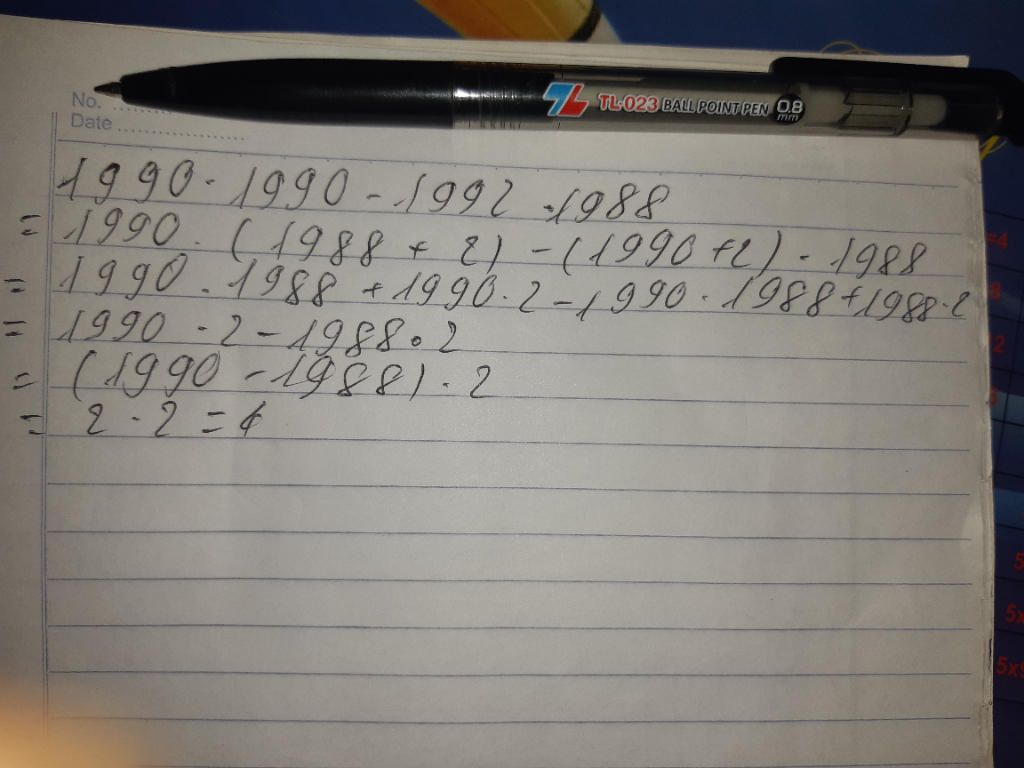 TL-023 BALL POINT PEN 0.8 mm
No.
Date
1990 . 1990 - 1992 . 1988
= 1990 . (1988 + 2) - (1990 + 2) . 1988
= 1990 . 1988 + 1990 . 2 - 1990 . 1988 + 1988 . 2
= 1990 . 2 - 1988 . 2
= (1990 - 1988) . 2
= 2 . 2 = 4
=4
8
2
5x9